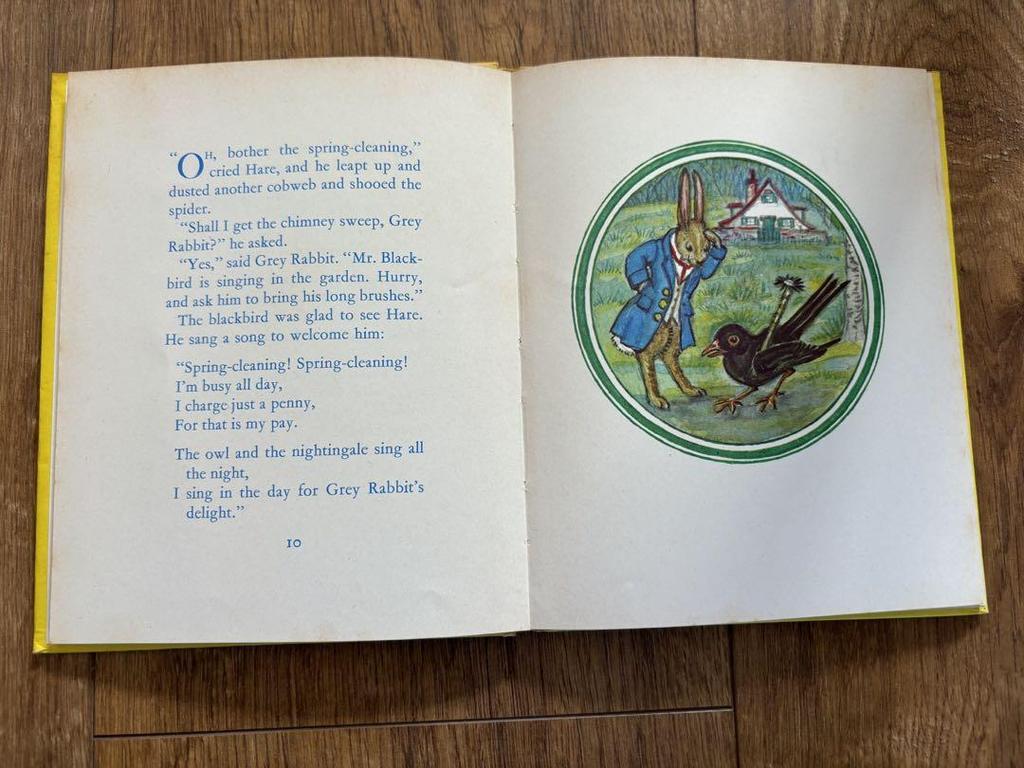 “OH, bother the spring-cleaning,”
cried Hare, and he leapt up and
dusted another cobweb and shooed the
spider.
“Shall I get the chimney sweep, Grey
Rabbit?” he asked.
“Yes,” said Grey Rabbit. “Mr. Black-
bird is singing in the garden. Hurry,
and ask him to bring his long brushes.”
The blackbird was glad to see Hare.
He sang a song to welcome him:
“Spring-cleaning! Spring-cleaning!
I’m busy all day,
I charge just a penny,
For that is my pay.
The owl and the nightingale sing all
the night,
I sing in the day for Grey Rabbit’s
delight.”
10